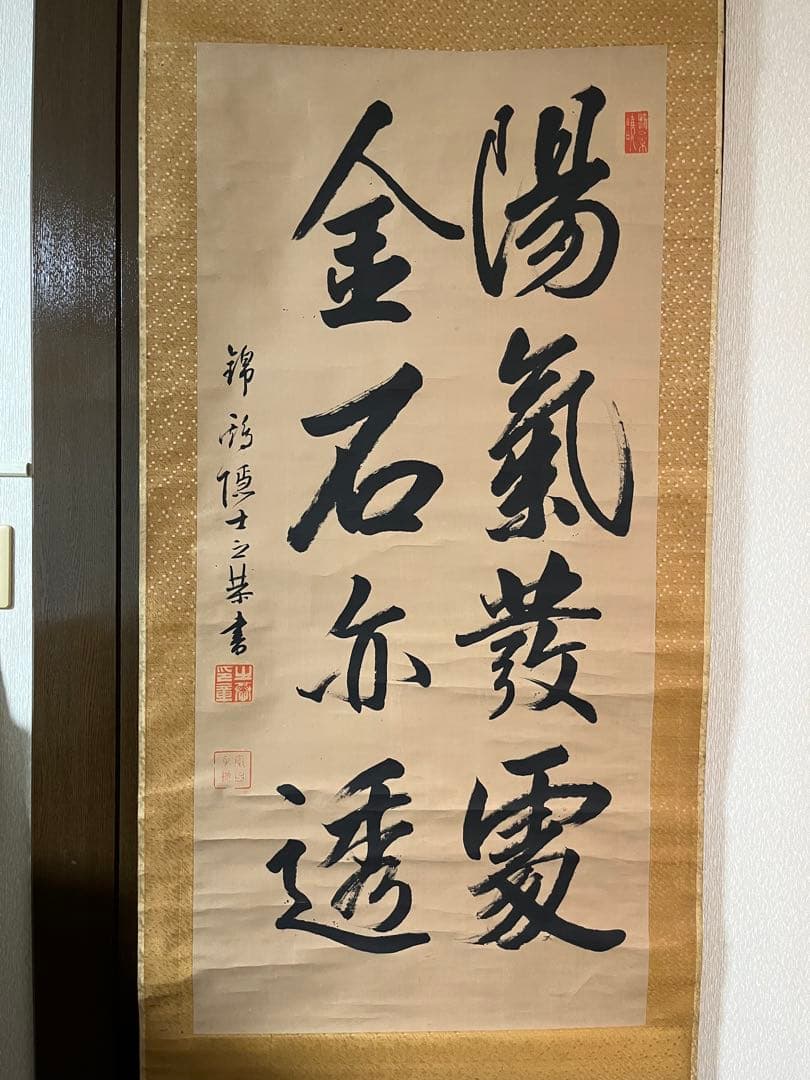 陽氣發處
金石亦透
錦鷄隱士之榮書